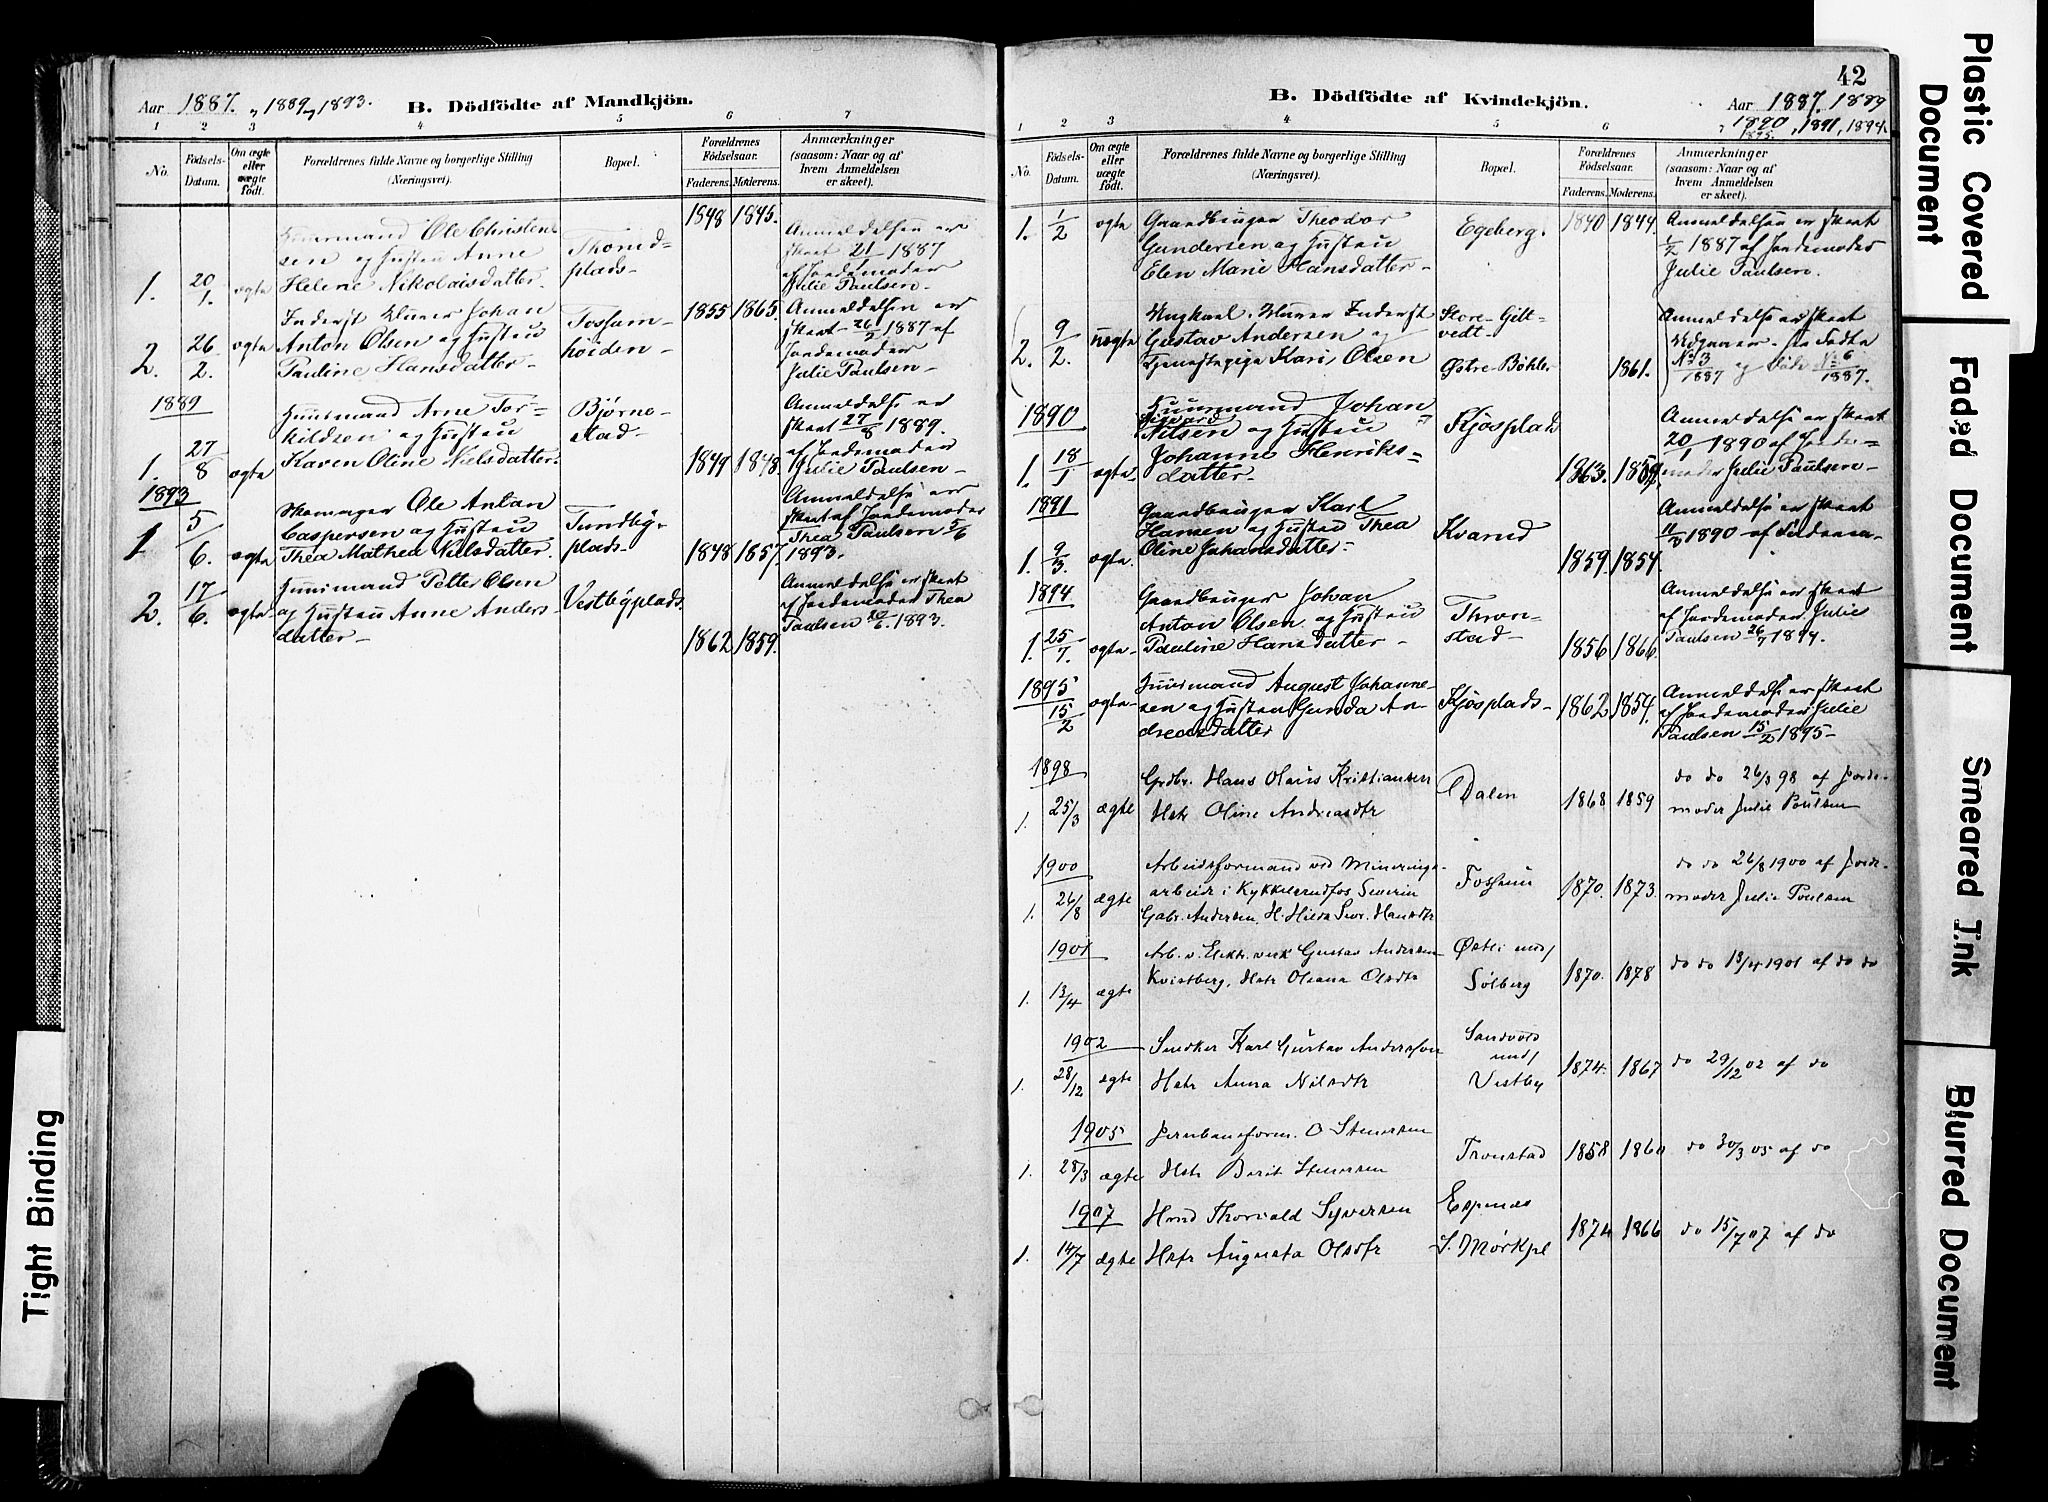 Aar 1887. „ 1889 „ 1893.
B. Dödfödte af Mandkjön.
1 2 3 4 5 6 7
No.
Fødsels-
Datum.
Om ægte
eller
uægte
født.
Forældrenes fulde Navne og borgerlige Stilling
(Næringsvei).
Bopæl.
Forældrenes
Fødselsaar.
Faderens. Moderens.
Anmærkninger
(saasom: Naar og af
hvem Anmeldelsen
er skeet).
1. 20/1. ægte
Huusmand Ole Christen
sen og Hustru Anne
Helene Nikolaisdatter.
plads-
1848 1845.
Anmeldelsen er
skeet 21/1 1887
af Jordemoder
Julie Paulsen-
2. 26/2. ægte
Inderst Johan
Anton Olsen og Hustru
Pauline Hansdatter-
Fossum-
høiden-
1855 1865.
Anmeldelsen er
skeet 26/2 1887 af
Jordemoder
Julie Paulsen-
1889
1. 27/8 ægte
Huusmand Arne Tor-
kildsen og Hustru
Karen Oline Nielsdatter.
Bjørne-
stad-
1849 1848.
Anmeldelse er
skeet 27/8 1889.
af Jordemoder
Julie Paulsen-
1893
1 5/6. ægte
Skomager Ole Anton
Caspersen og Hustru
Thea Mathea Nielsdatter.
Tundby-
plads-
1848 1857.
Anmeldelse er
skeet af Jordemoder
Thea Paulsen 5/6
1893.
2. 17/6. ægte
Huusmand Petter Olsen
og Hustru Anne Anders
datter-
Vestbyplads.
1862 1859.
Anmeldelse er skeet
af Jordemoder Thea
Paulsen 20/6. 1893.
42
B. Dödfödte af Kvindekjön.
Aar 1887. 1889
„ 1890, 1891, 1894.
1895.
1 2 3 4 5 6
No.
Fødsels-
Datum.
Om ægte
eller
uægte
født.
Forældrenes fulde Navne og borgerlige Stilling
(Næringsvei).
Bopæl.
Forældrenes
Fødselsaar.
Faderens. Moderens.
Anmærkninger
(saasom: Naar og af
hvem Anmeldelsen
er skeet).
1. 1/2 ægte
Gaardbruger Theodor
Gundersen og Hustru
Elen Marie Hansdatter-
Egeberg.
1840 1844.
Anmeldelsen er skeet
1/2 1887 af Jordemoder
Julie Paulsen.
2. 9/2. uægte
Ungkarl. Inderst
Gustav Andersen og
Tjenestepige Kari Olsen
Store-Gilt-
vedt-
Østre-Bøhler
1861.
Anmeldelse er skeet
No 3/1887 og Døde No 6/1887.
1890
1. 18/1 ægte-
Huusmand Johan
Nilsen og Hustru
Johanne Henriks-
datter-
Kjøsplads
1863. 1859.
Anmeldelse er skeet
20/1 1890 af Jorde-
moder Julie Paulsen-
1891
1. 9/3. ægte.
Gaardbruger Karl
Hansen og Hustru Thea
Oline Johansdatter-
1859. 1854.
Anmeldelse er skeet
1890 af
1894
1. 25/7. ægte-
Gaardbruger Johan
Anton Olsen og Hustru
Pauline Hansdatter-
Thron-
stad-
1856 1866.
Anmeldelse er skeet
af Jordemoder Julie
Paulsen 26/7 1894.
1895
15/2 ægte-
Huusmand August Johanne-
sen og Hustru Gunda An-
dreasdatter
Kjøsplads-
1862 1854.
Anmeldelse er skeet
af Jordemoder Julie
Paulsen 15/2 1895-
1898
1. 25/3 ægte
Grdbr. Hans Olaus Kristiansen
Hstr Oline Andreasdtr
Dalen
1868 1859
do do 26/3 98 af Jorde-
moder Julie Poulsen
1900
1. 26/8 ægte
Arbeidsformand ved Minerings-
arbeide i Kykkelsrudfos Severin
Gabr. Andersen, H. Hilda Sev. Hansdtr
Fossum
1870. 1873.
do do 26/8 1900 af Jorde-
moder Julie Poulsen
1901
1. 13/4 ægte
Arb. v. Elektr. verk Gustav Andersen
Kvistberg, Hstr Oleana Olsdtr
Østli und/
Solberg
1870. 1878
do do 13/4 1901 af do do
1902
1. 28/12 ægte
Snedker Karl Gustav Andersson
Hstr Anna Nilsdtr
Sandvold
und/
Vestby
1874. 1867
do 29/12 02 af do
1905
1. 28/3 ægte
Jernbaneform. O Stenersen
Hstr Berit Stenersen
Tronstad
1858 1860
do 30/3 05 af do
1907
1. 14/7 ægte
Hmd Thorvald Syversen
Hstr Augusta Olsdtr
Espenæs
S. Mørkpl
1874 1866
do 15/7 07 af do
Plastic Covered
Document
Faded Document
Smeared Ink
Blurred Document
Tight Binding